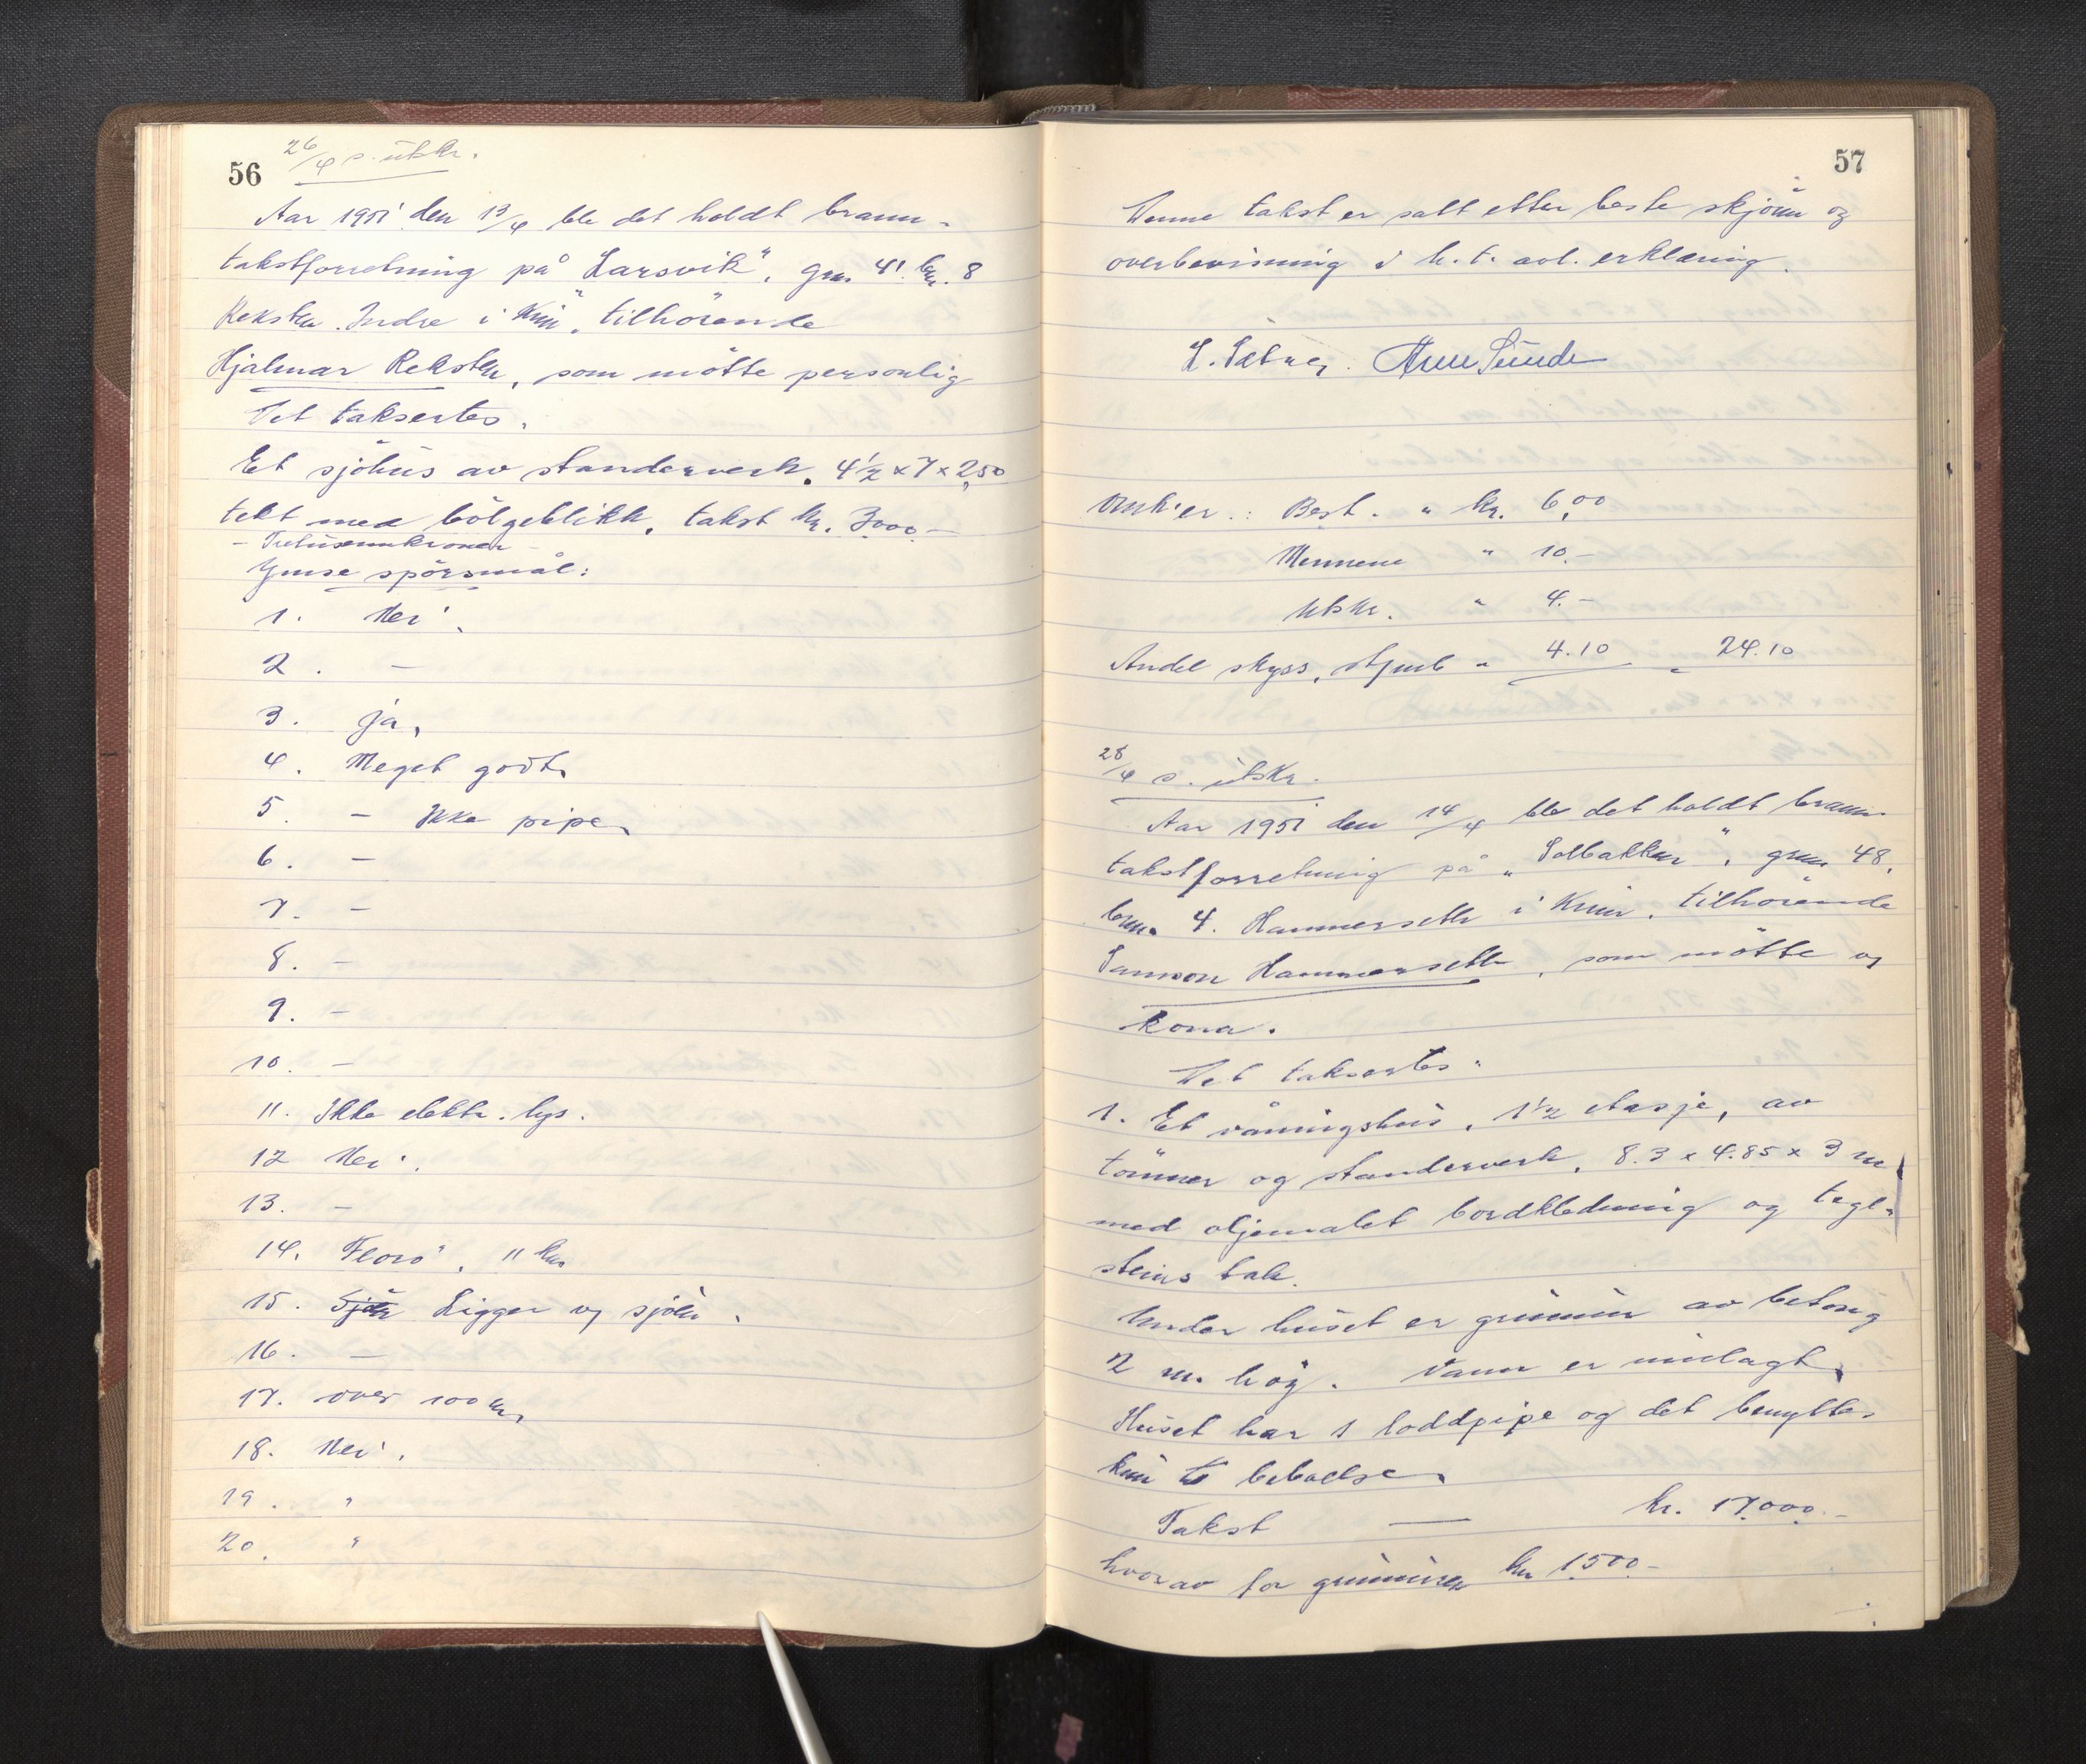 56
26/4 s. utskr.
Aar 1951 den 13/4 ble det holdt brann-
takstforretning på „Larsvik", gnr. 41. bnr. 8
Reksta Indre i Kinn, tilhörende
Hjalmar Reksten, som mötte personlig
Det taksertes.
Et sjöhus av standerverk. 4½ x 7 x 2,50
tekt med bölgeblikk, takst kr. 3000.—
— Tretusenkroner —
Ymse spörsmål:
1. Nei.
2. —
3. Ja,
4. Meget godt.
5. — Ikke pipe.
6. —
7. —
8. —
9. —
10. —
11. Ikke elektr. lys.
12 Nei.
13. —
14. Florö, 11 km.
15. Ligger og sjöen.
16. —
17. over 100 m.
18. Nei.
19. "
20. "
57
Denne takst er satt etter beste skjönn og
overbevisning i h. t. avl. erklæring.
L. Sætren. Arne Sunde
Omk'er: Best. " kr. 6,00
Mennene " 10.—
Utskr. " 4.—
Andel skyss, " 4.10 " 24.10
28/4 s. utskr.
Aar 1951 den 14/4 ble det holdt brann-
takstforretning på „Solbakken", gnr. 48,
bnr. 4. Hammerseth i Kinn, tilhörende
Samson Hammerseth, som mötte og
kona.
Det taksertes:
1. Et våningshus, 1½ etasje, av
tömmer og standerverk, 8.3 x 4.85 x 3 m
med oljemalet bordkledning og tegl-
steins tak.
Under huset er grunnmur av betong
2 m. höy. Vann er innlagt.
Huset har 1 loddpipe og det benyttes
kun til beboelse.
Takst — kr. 17.000.—
hvorav for grunnmuren kr. 1500.—